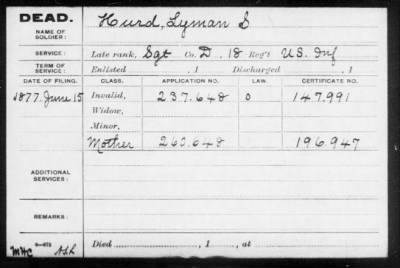 DEAD.
NAME OF SOLDIER: Hurd, Lyman S
SERVICE: Late rank, Sgt Co. D, 18 Reg't US. Inf
TERM OF SERVICE: Enlisted , 1 Discharged , 1
DATE OF FILING. CLASS. APPLICATION NO. LAW. CERTIFICATE NO.
1877. June 15 Invalid, 237.648 0 147.991
Widow,
Minor,
Mother 260.648 196.947
ADDITIONAL SERVICES:
REMARKS:
Died , 1 , at
MHC Ash